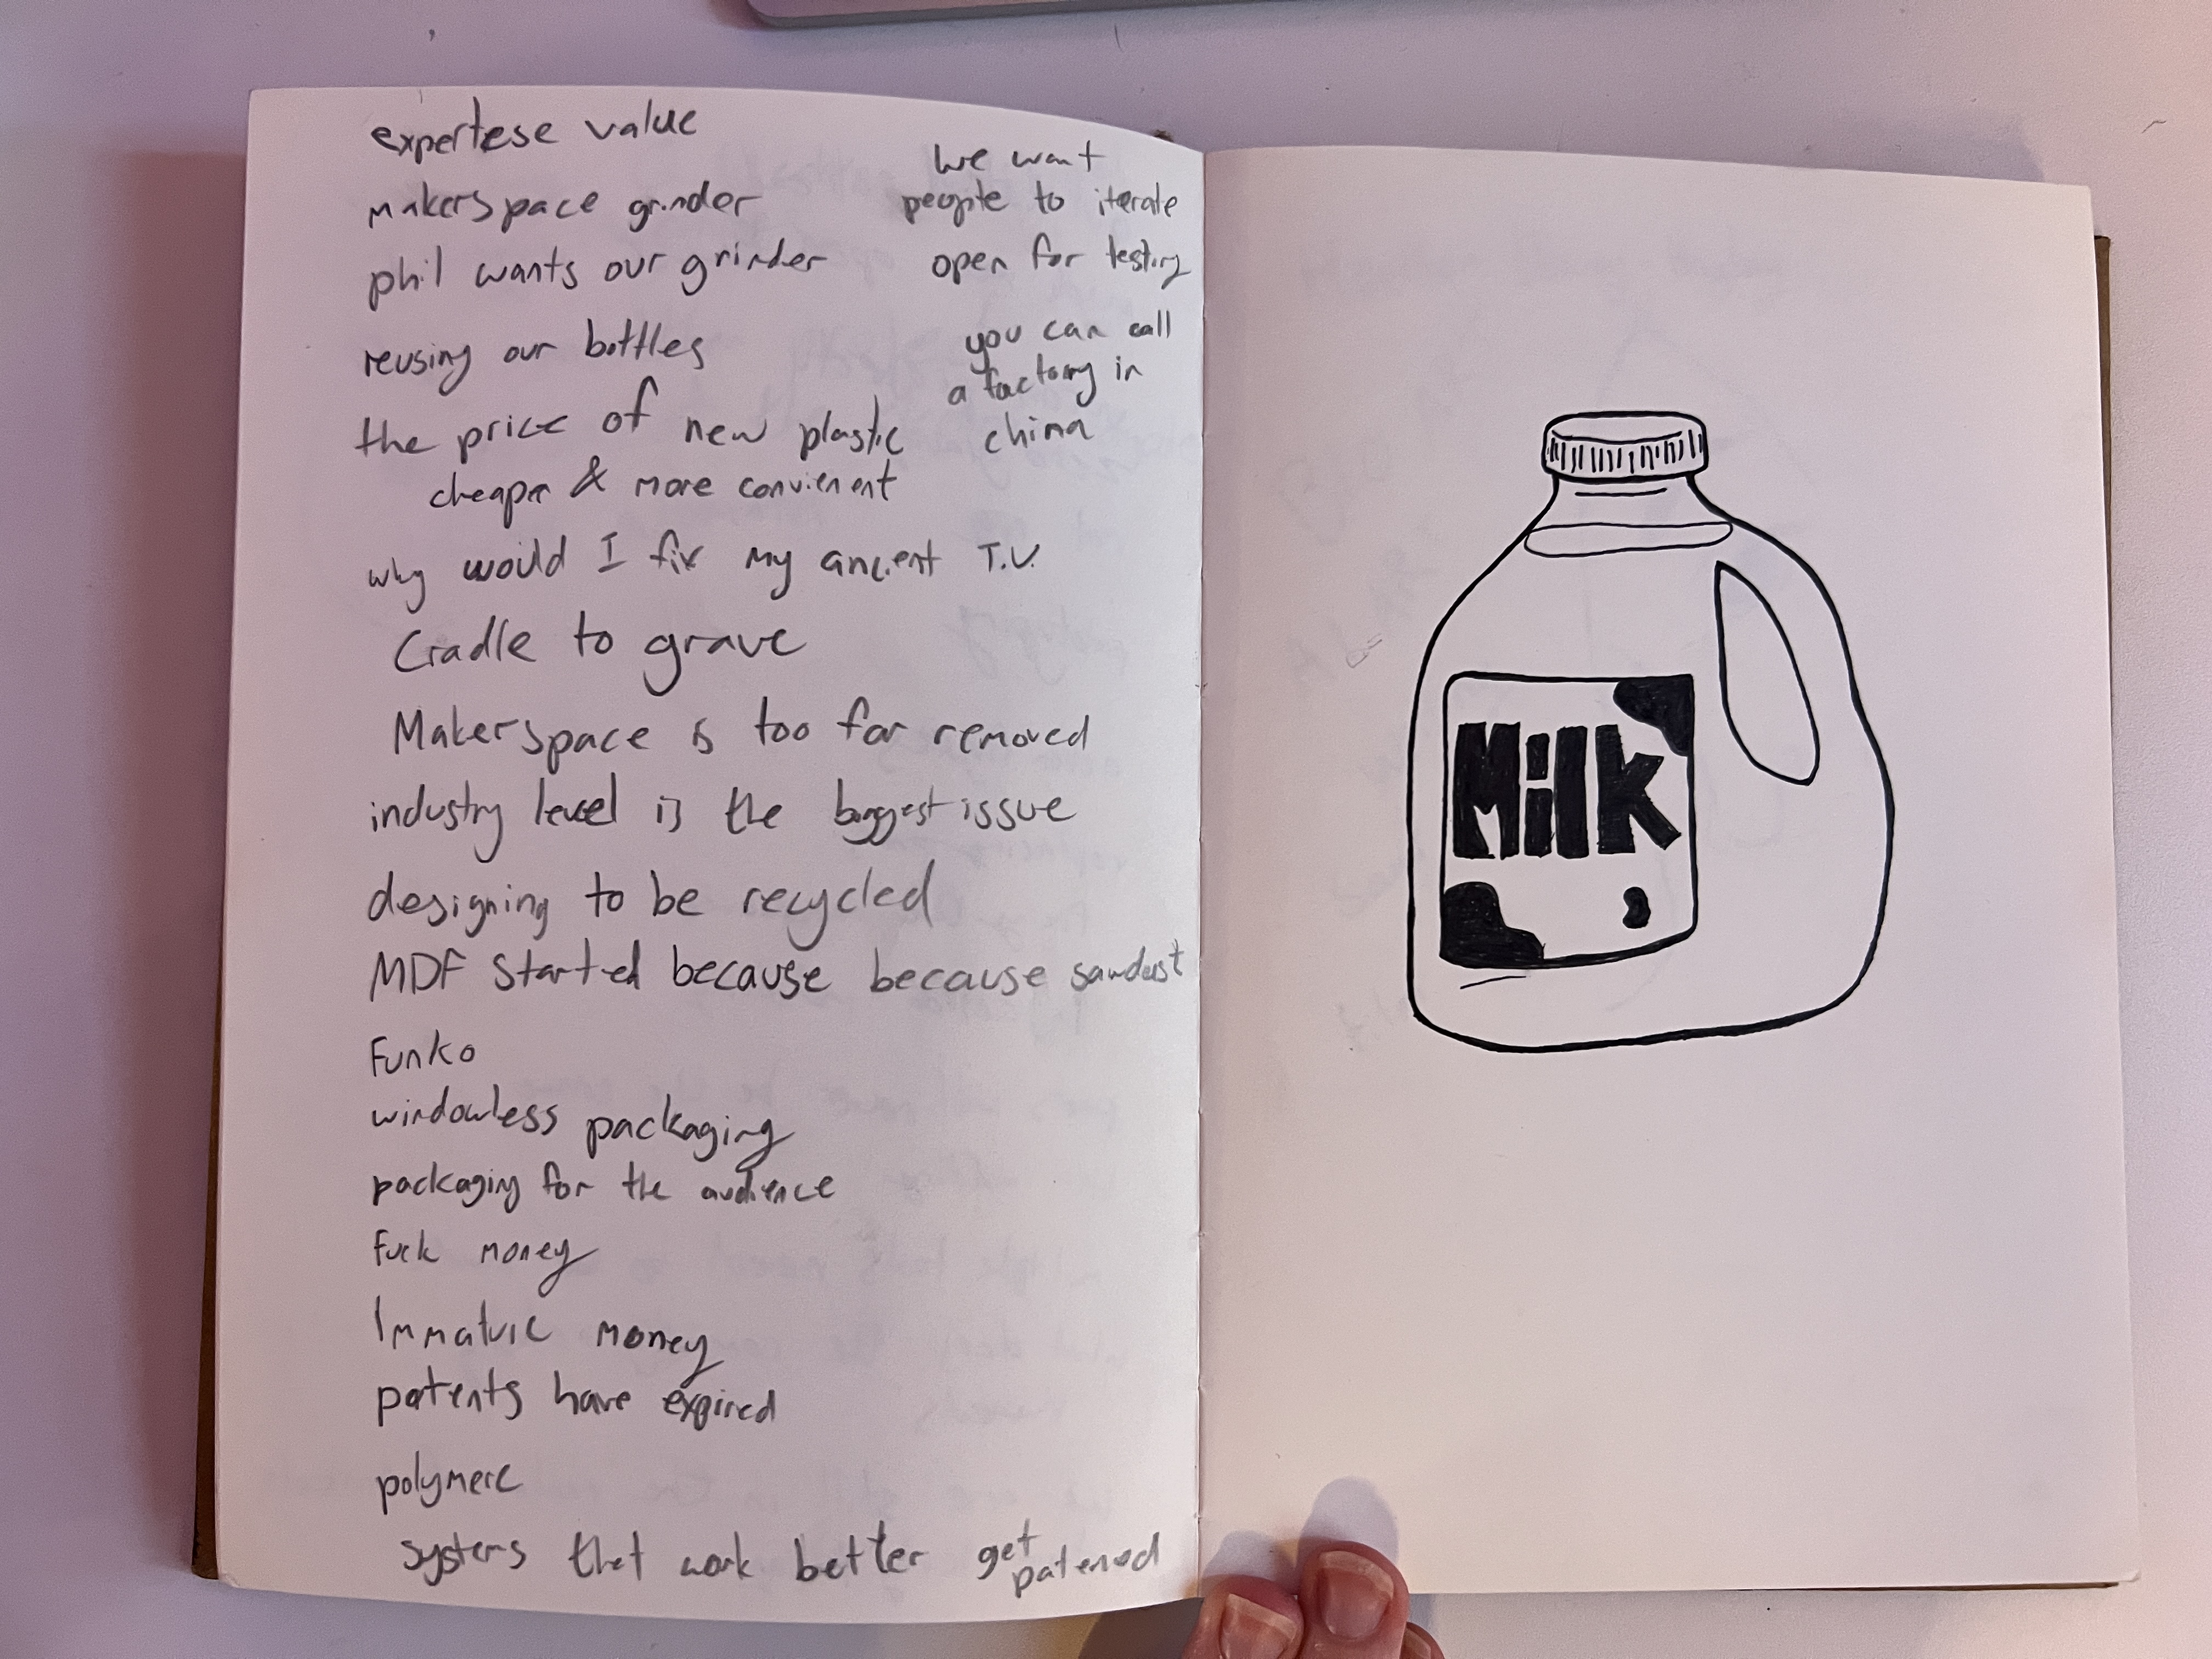 expertese value
makerspace grinder
phil wants our grinder
reusing our bottles
the price of new plastic
cheaper & more convienent
why would I fix my ancient T.V.
Cradle to grave
Makerspace is too far removed
industry level is the biggest issue
designing to be recycled
MDF started because because sawdust
Funko
windowless packaging
packaging for the audience
fuck money
Immature money
patents have expired
polymere
systems that work better get
patened
We want
people to iterate
open for testing
you can call
a factory in
china
Milk